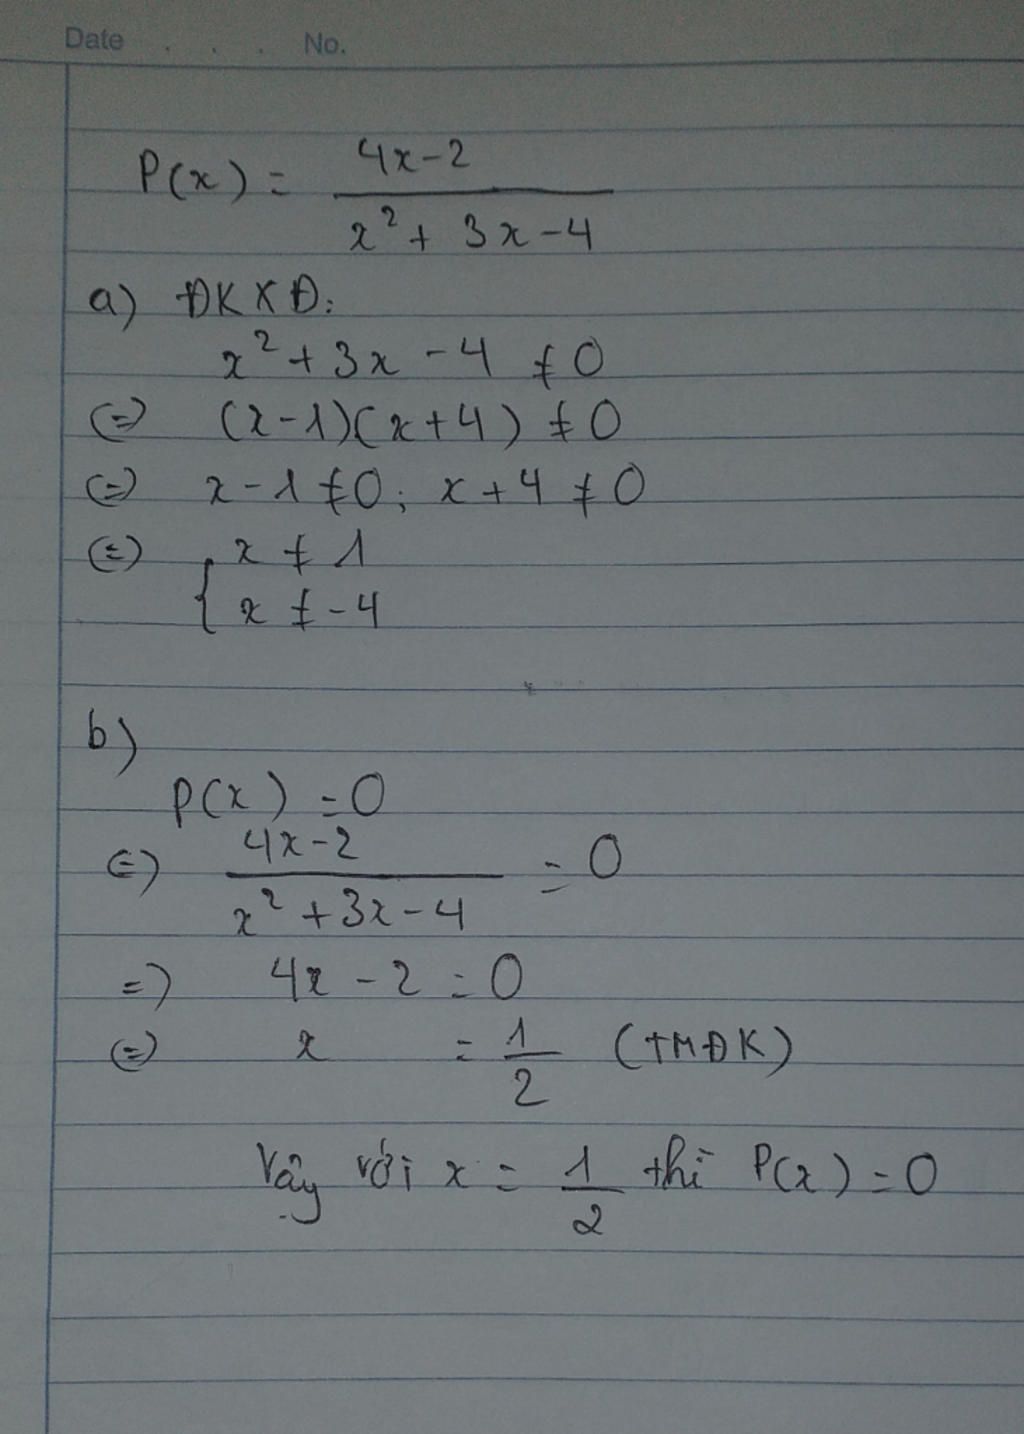 Date . . . No.
P(x) = \frac{4x-2}{x^2+3x-4}
a) ĐKXĐ:
x^2+3x-4 ≠ 0
(=) (x-1)(x+4) ≠ 0
(=) x-1 ≠ 0; x+4 ≠ 0
(=) { x ≠ 1
x ≠ -4
b)
P(x) = 0
(=) \frac{4x-2}{x^2+3x-4} = 0
=) 4x-2 = 0
(=) x = \frac{1}{2} (TMĐK)
Vậy với x = \frac{1}{2} thì P(x) = 0